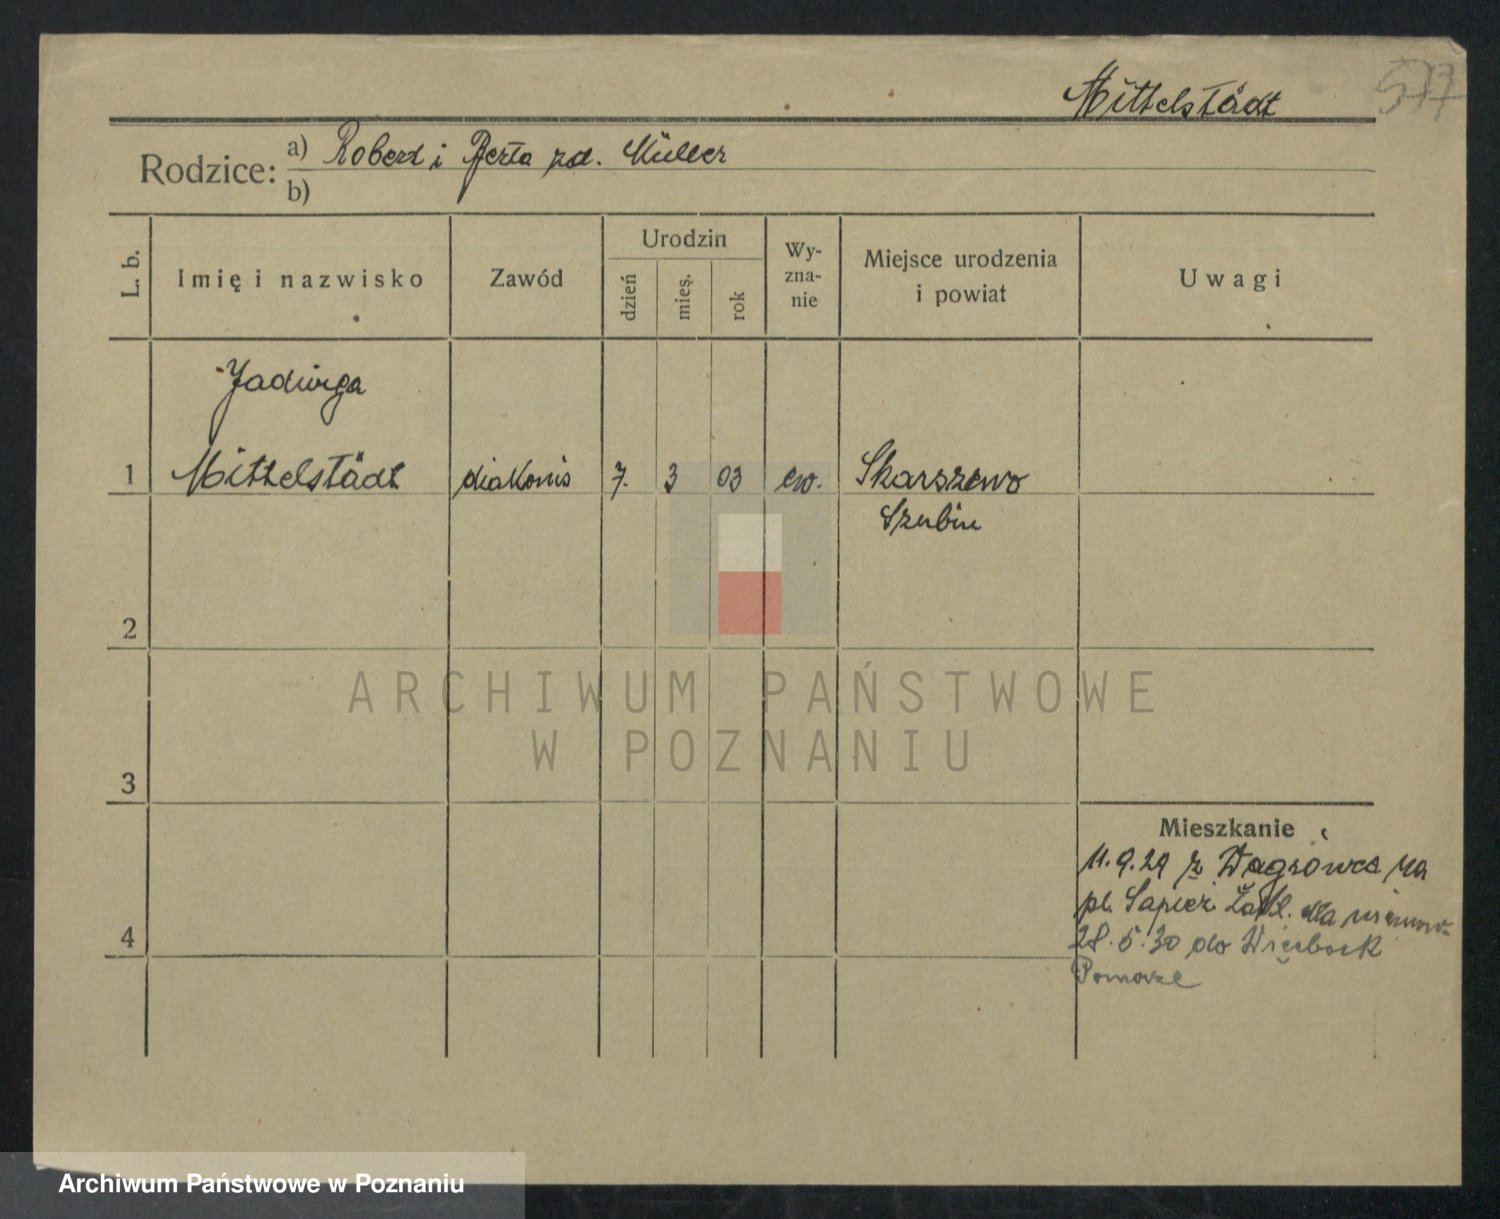 Mittelstädt
577
Rodzice: a) Robert i Berta zd. Müller
b)
L. b.
Imię i nazwisko
Zawód
Urodzin
dzień
mies.
rok
Wy-
zna-
nie
Miejsce urodzenia
i powiat
Uwagi
Jadwiga
1 Mittelstädt diakonis 7. 3 03 ew. Skarszewo
Szubin
2
3
4
Mieszkanie
11.9.29 z Wągrówca na
pl. Sapież. Zakł. dla niemow.
28.5.30 do Więcbork
Pomorze
ARCHIWUM PAŃSTWOWE
W POZNANIU
Archiwum Państwowe w Poznaniu